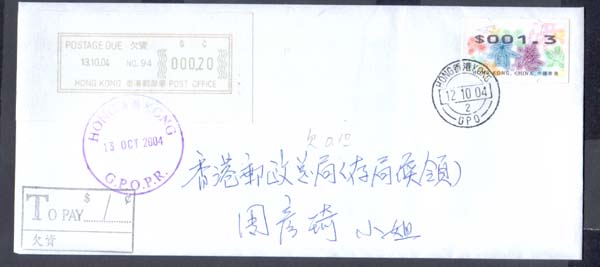 POSTAGE DUE 欠資 $ C
13.10.04 NO. 94 000.20
HONG KONG 香港郵政 POST OFFICE
$001.3
HONG KONG, CHINA 中國香港
HONG 香港 KONG
12 10 04
2
GPO
HONG KONG
13 OCT 2004
G.P.O.P.R.
欠 0.10
香港郵政总局(存局候領)
周彦琦 小姐
TO PAY $ / ¢
欠資